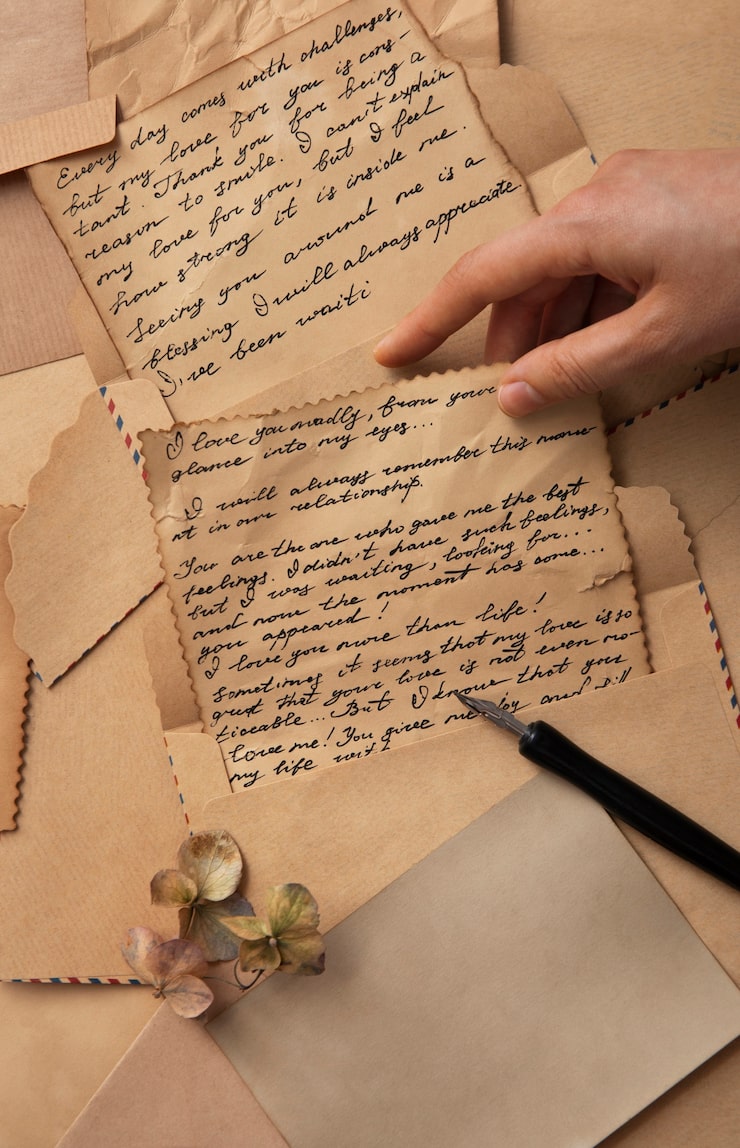 Every day comes with challenges,
but my love for you is cons-
tant. Thank you for being a
reason to smile. I can't explain
my love for you, but I feel
how strong it is inside me.
Seeing you around me is a
blessing I will always appreciate.
I've been waiti
I love you madly, from your
glance into my eyes...
I will always remember this mome-
nt in our relationship.
You are the one who gave me the best
feelings. I didn't have such feelings,
but I was waiting, looking for...
and now the moment has come...
you appeared!
I love you more than life!
Sometimes it seems that my love is so
great that your love is not even no-
ticeable... But I know that you
love me! You give me joy and fill
my life with